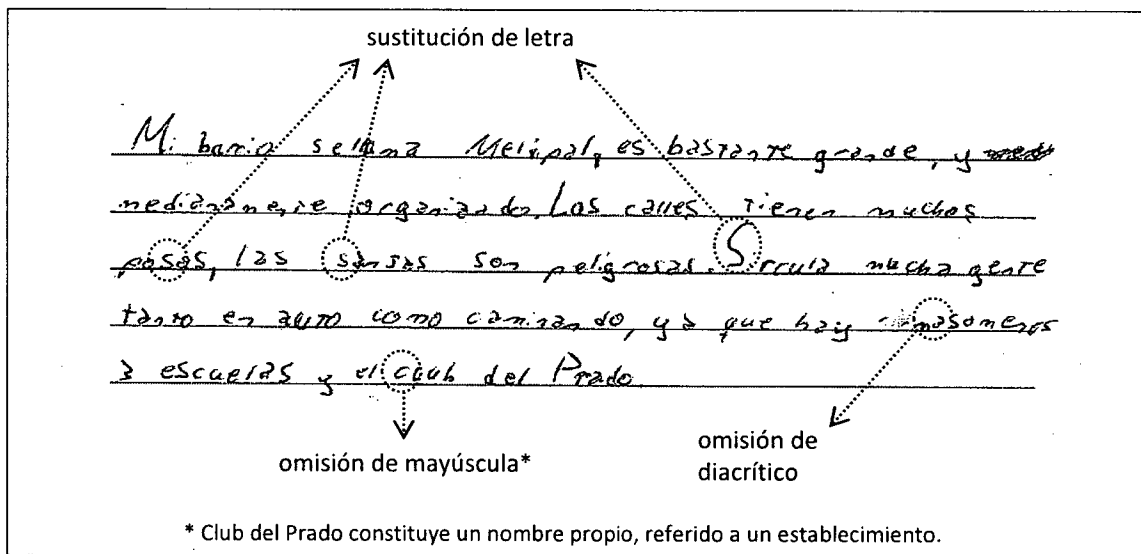 sustitución de letra
Mi barrio se llama Melipal, es bastante grande, y
medianamente organizado. Las calles tienen muchos
posos, las sansas son peligrosas. Sircula mucha gente
tanto en auto como caminando, ya que hay mas o menos
3 escuelas y el club del Prado
omisión de mayúscula*
omisión de
diacrítico
* Club del Prado constituye un nombre propio, referido a un establecimiento.